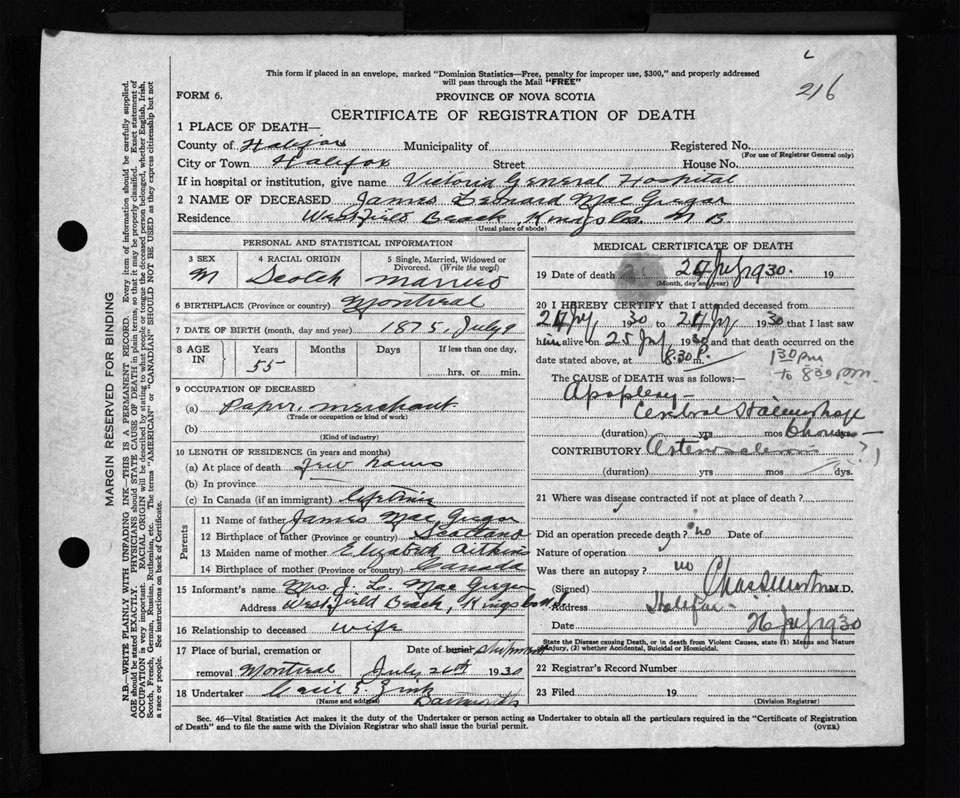 L
216
This form if placed in an envelope, marked "Dominion Statistics—Free, penalty for improper use, $300," and properly addressed
will pass through the Mail "FREE"
FORM 6.
PROVINCE OF NOVA SCOTIA
CERTIFICATE OF REGISTRATION OF DEATH
1 PLACE OF DEATH—
County of Halifax Municipality of Registered No.
(For use of Registrar General only)
City or Town Halifax Street House No.
If in hospital or institution, give name Victoria General Hospital
2 NAME OF DECEASED James Leonard Mac Gregor
Residence Westfield Beach, Kings Co. N B.
(Usual place of abode)
PERSONAL AND STATISTICAL INFORMATION
3 SEX 4 RACIAL ORIGIN 5 Single, Married, Widowed or
Divorced. (Write the word)
M Scotch Married
6 BIRTHPLACE (Province or country) Montreal
7 DATE OF BIRTH (month, day and year) 1875, July 9
8 AGE IN Years Months Days If less than one day,
55
hrs. or min.
9 OCCUPATION OF DECEASED
(a) Paper, merchant
(Trade or occupation or kind of work)
(b)
(Kind of industry)
10 LENGTH OF RESIDENCE (in years and months)
(a) At place of death few hours
(b) In province
(c) In Canada (if an immigrant) life time
Parents
11 Name of father James Mac Gregor
12 Birthplace of father (Province or country) Scotland
13 Maiden name of mother Elizabeth Aitkin
14 Birthplace of mother (Province or country) Canada
15 Informant's name Mrs. J. L. Mac Gregor
Address Westfield Beach, Kings
16 Relationship to deceased wife
17 Place of burial, cremation or Date of burial shipment
removal Montreal July 26th 1930
18 Undertaker Zink
(Name and address) Dartmouth
MEDICAL CERTIFICATE OF DEATH
19 Date of death July 1930. 19
(Month, day and year)
20 I HEREBY CERTIFY that I attended deceased from
1930 to 1930 that I last saw
him alive on 25 July 1930 and that death occurred on the
date stated above, at 8.30 P. m.
1 30 pm
to 8 30 p.m.
The CAUSE of DEATH was as follows:—
Apoplexy—
Cerebral Haemorrhage
(duration) yrs mos 6 hours days
CONTRIBUTORY ?)
(duration) yrs mos days.
21 Where was disease contracted if not at place of death?
Did an operation precede death? no Date of
Nature of operation
Was there an autopsy? no
(Signed) Chas M.D.
Address Halifax—
Date 26 July 1930
State the Disease causing Death, or in death from Violent Causes, state (1) Means and Nature
of Injury, (2) whether Accidental, Suicidal or Homicidal.
22 Registrar's Record Number
23 Filed 19
(Division Registrar)
Sec. 46—Vital Statistics Act makes it the duty of the Undertaker or person acting as Undertaker to obtain all the particulars required in the "Certificate of Registration
of Death" and to file the same with the Division Registrar who shall issue the burial permit. (OVER)
MARGIN RESERVED FOR BINDING
N.B.—WRITE PLAINLY WITH UNFADING INK—THIS IS A PERMANENT RECORD. Every item of information should be carefully supplied.
AGE should be stated EXACTLY. PHYSICIANS should STATE CAUSE OF DEATH in plain terms, so that it may be properly classified. Exact statement of
OCCUPATION is very important. RACIAL ORIGIN will be described by stating to what people or tongue the deceased person belonged, whether English, Irish,
Scotch, French, German, Russian, Ruthenian, etc. The terms "AMERICAN" or "CANADIAN" SHOULD NOT BE USED as they express citizenship but not
a race or people. See instructions on back of Certificate.